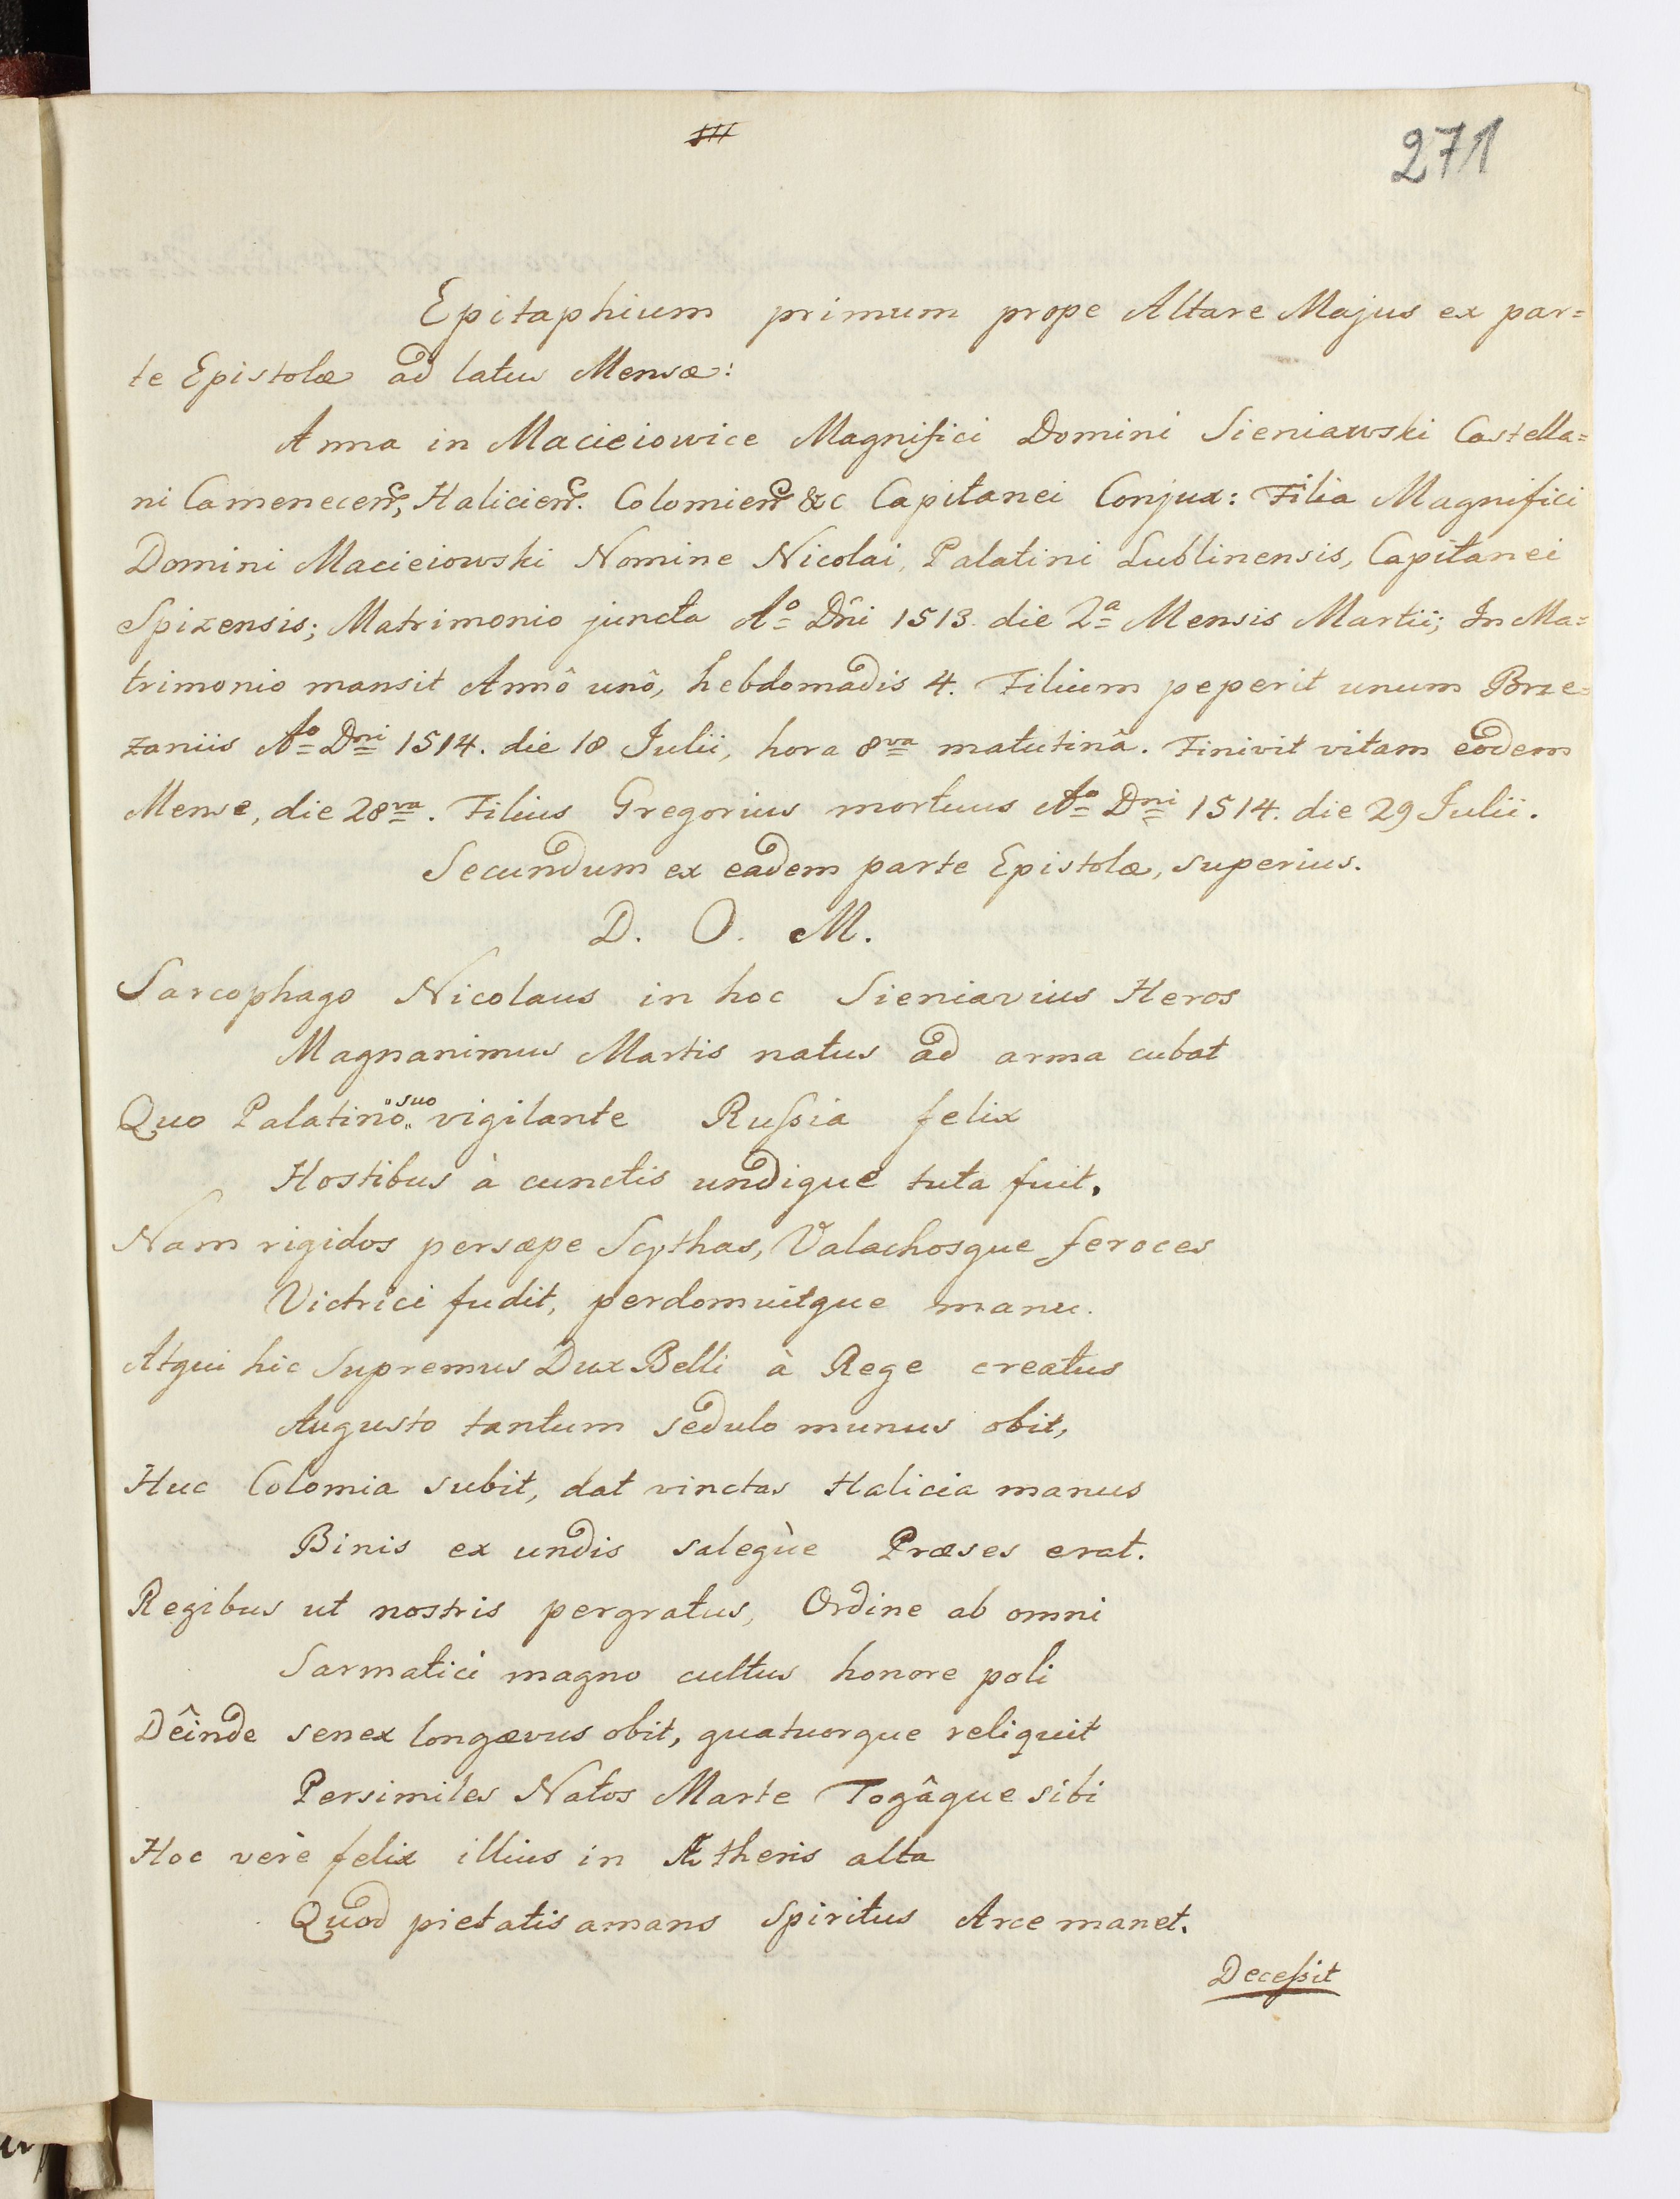 271
Epitaphium primum prope Altare Majus ex par=
te Epistolæ ad latus Mensæ:
Anna in Macieiowice Magnifici Domini Sieniawski Castella=
ni Camenecen̄, Halicien̄. Colomien̄ &c Capitanei Conjux: Filia Magnifici
Domini Macieiowski Nomine Nicolai, Palatini Lublinensis, Capitanei
Spizensis; Matrimonio juncta Aº Dñi 1513. die 2ª Mensis Martii; In Ma=
trimonio mansit Annô unô, hebdomadis 4. Filium peperit unum Brze=
zaniis Aº Dni 1514. die 18 Julii, hora 8va matutinâ. Finivit vitam eodem
Mense, die 28va. Filius Gregorius mortuus Aº Dni 1514. die 29 Julii.
Secundum ex eadem parte Epistolæ, superius.
D. O. M.
Sarcophago Nicolaus in hoc Sieniavius Heros
Magnanimus Martis natus ad arma cubat
Quo Palatino „suo vigilante Rußia felix
Hostibus à cunctis undique tuta fuit.
Nam rigidos persæpe Scythas, Valachosque feroces
Victrici fudit, perdomuitque manu.
Atqui hic Supremus Dux Belli à Rege creatus
Augusto tantum sedulo munus obit,
Huc Colomia subit, dat vinctas Halicia manus
Binis ex undis saleqùe Præses erat.
Regibus ut nostris pergratus, Ordine ab omni
Sarmatici magno cultus honore poli
Dêinde senex longævus obit, quatuorque reliquit
Persimiles Natos Marte Togâque sibi
Hoc verè felix illius in Ætheris alta
Quod pietatis amans Spiritus Arce manet.
Deceßit